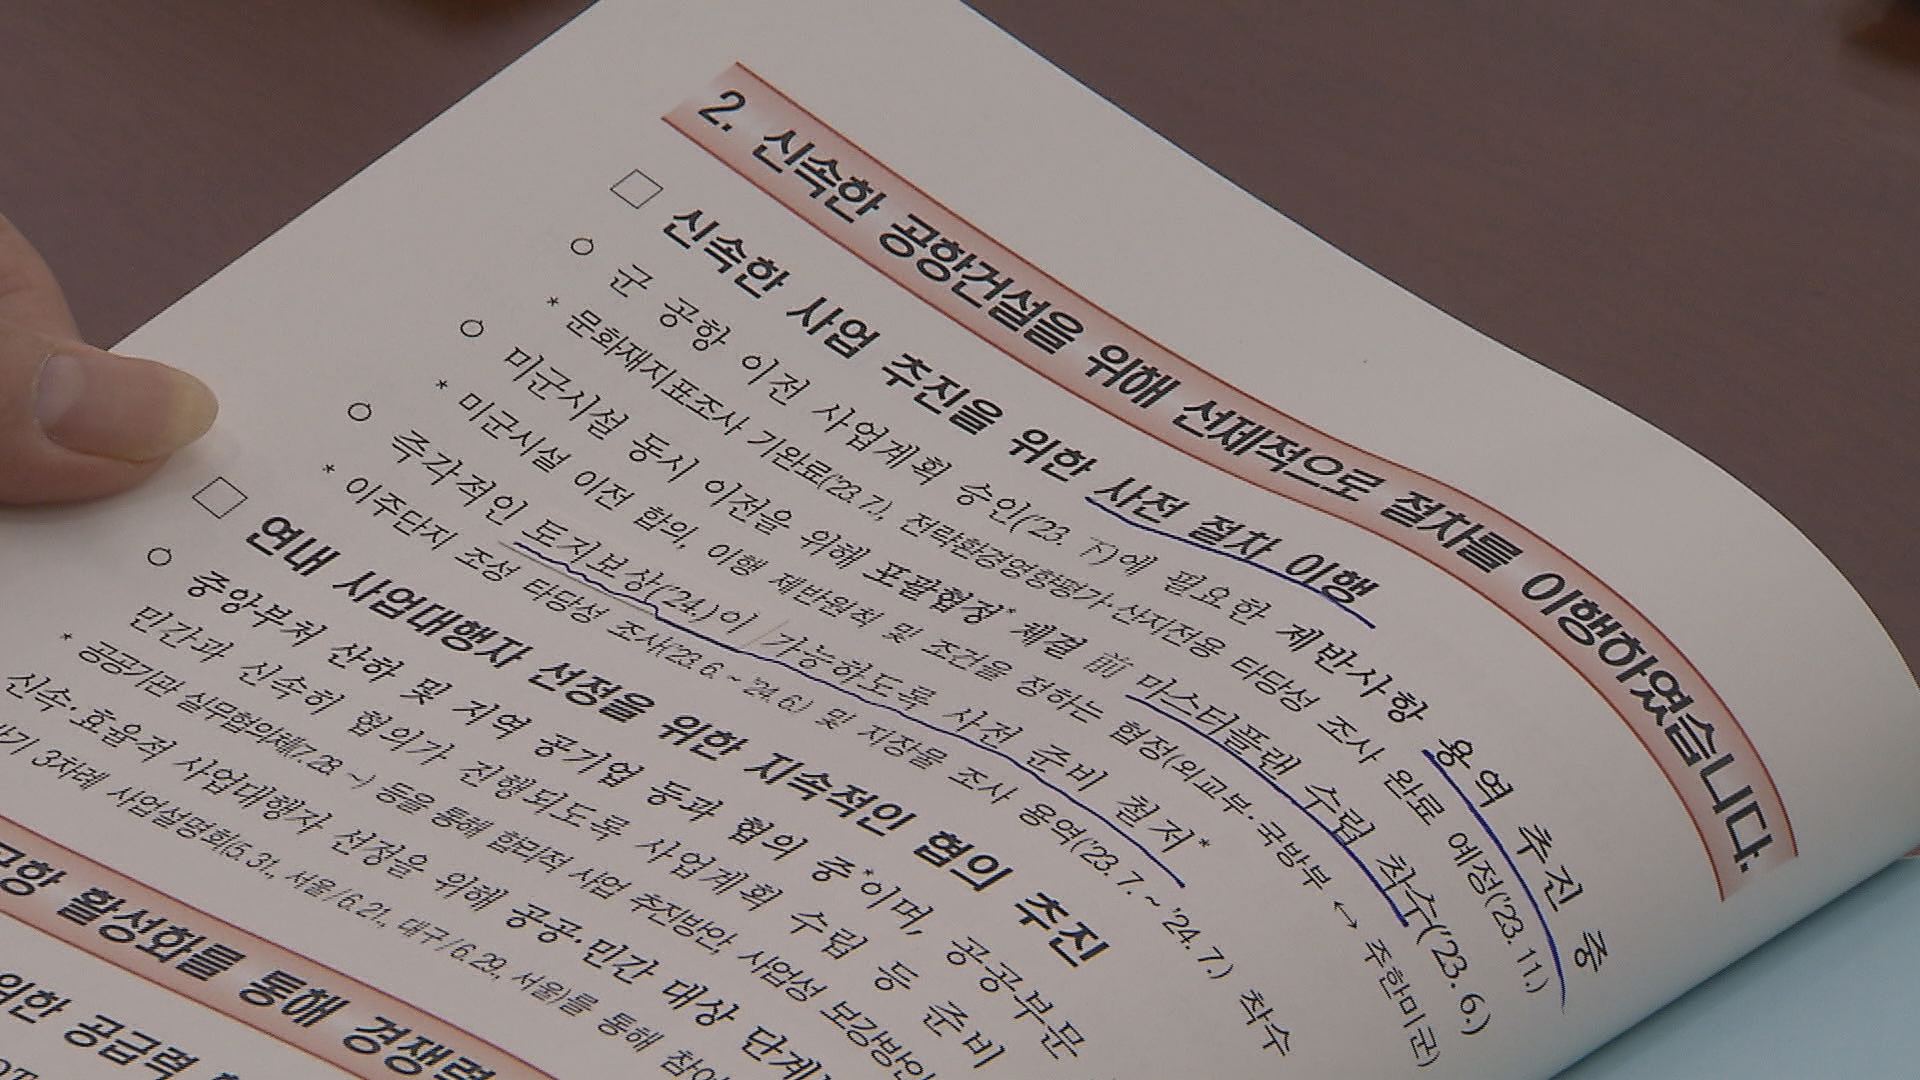 2. 신속한 공항건설을 위해 선제적으로 절차를 이행하였습니다.
□ 신속한 사업 추진을 위한 사전 절차 이행
○ 군 공항 이전 사업계획 승인('23. 下)에 필요한 제반사항 용역 추진 중
* 문화재지표조사 기완료('23.7.), 전략환경영향평가·산지전용 타당성 조사 완료 예정('23.11.)
○ 미군시설 동시 이전을 위해 포괄협정* 체결 前 마스터플랜 수립 착수('23. 6.)
* 미군시설 이전 합의, 이행 제반원칙 및 조건을 정하는 협정(외교부·국방부 ↔ 주한미군)
○ 즉각적인 토지보상('24.)이 가능하도록 사전 준비 철저*
* 이주단지 조성 타당성 조사('23.6. ~ '24.6.) 및 지장물 조사 용역('23.7. ~ '24.7.) 착수
□ 연내 사업대행자 선정을 위한 지속적인 협의 추진
○ 중앙부처 산하 및 지역 공기업 등과 협의 중*이며, 공공부문
민간과 신속히 협의가 진행되도록 사업계획 수립 등 준비
* 공공기관 실무협의체(7.28. ~) 등을 통해 합리적 사업 추진방안, 사업성 보강방안
신속·효율적 사업대행자 선정을 위해 공공·민간 대상 단계
3차례 사업설명회(5.31., 서울/6.21., 대구/6.29., 서울)를 통해
공항 활성화를 통해 경쟁력
위한 공급력